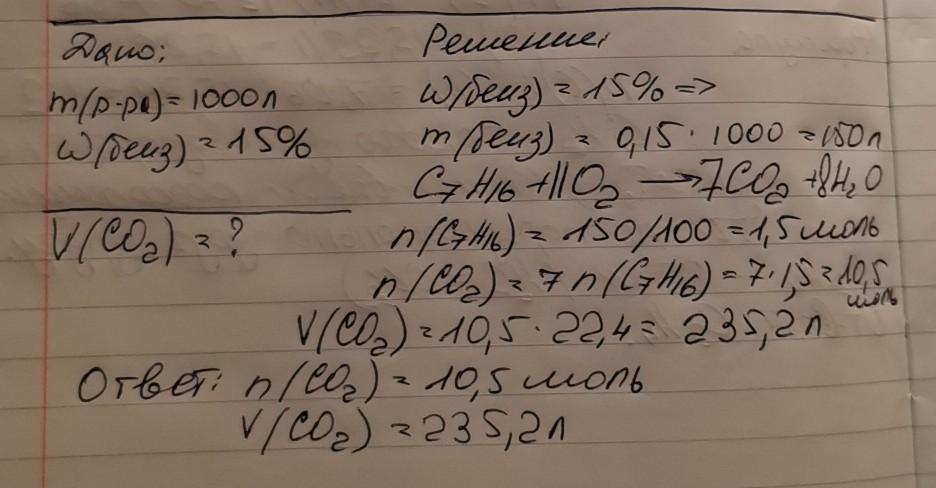 Дано:
m(р-ра) = 1000л
W(бенз) = 15%
V(CO₂) = ?
Решение:
W(бенз) = 15% =>
m(бенз) = 0,15 · 1000 = 150л
C₇H₁₆ + 11O₂ → 7CO₂ + 8H₂O
n(C₇H₁₆) = 150/100 = 1,5 моль
n(CO₂) = 7 n(C₇H₁₆) = 7 · 1,5 = 10,5 моль
V(CO₂) = 10,5 · 22,4 = 235,2л
Ответ: n(CO₂) = 10,5 моль
V(CO₂) = 235,2л